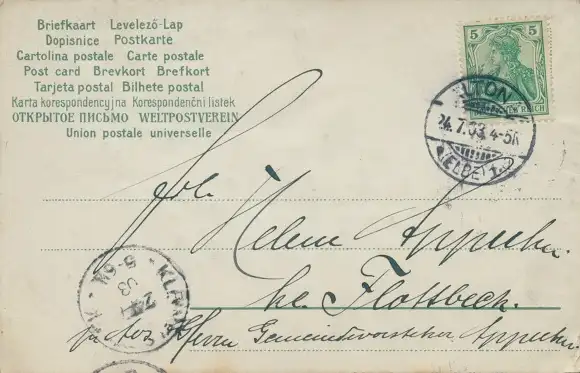 Briefkaart Levelező-Lap
Dopisnice Postkarte
Cartolina postale Carte postale
Post card Brevkort Brefkort
Tarjeta postal Bilhete postal
Karta korespondencyjna Korespondenční lístek
ОТКРЫТОЕ ПИСЬМО WELTPOSTVEREIN
Union postale universelle
5 5
REICH
LTON
24.7.03. 4-5N
(ELBE) 1.
Helene
kl. Flottbeck.
Herrn Gemeindevorsteher
5-6N
03
KL.